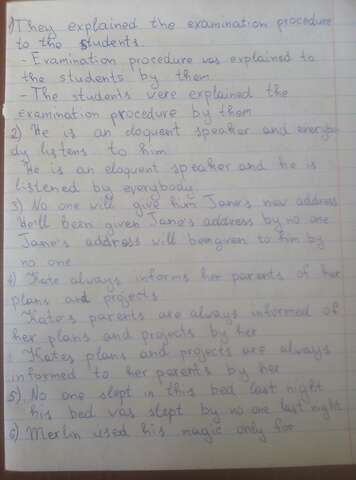 1) They explained the examination procedure
to the students.
- Examination procedure was explained to
the students by them
- The students were explained the
examination procedure by them
2) He is an eloquent speaker and everybo
dy listens to him
He is an eloquent speaker and he is
listened by everybody.
3) No one will give him Jane's new address
He'll been given Jane's address by no one
Jane's address will being given to him by
no one
4) Kate always informs her parents of her
plans and projects
Kate's parents are always informed of
her plans and projects by her
Kates plans and projects are always
informed to her parents by her
5) No one slept in this bed last night
his bed was slept by no one last night
6) Merlin used his magic only for